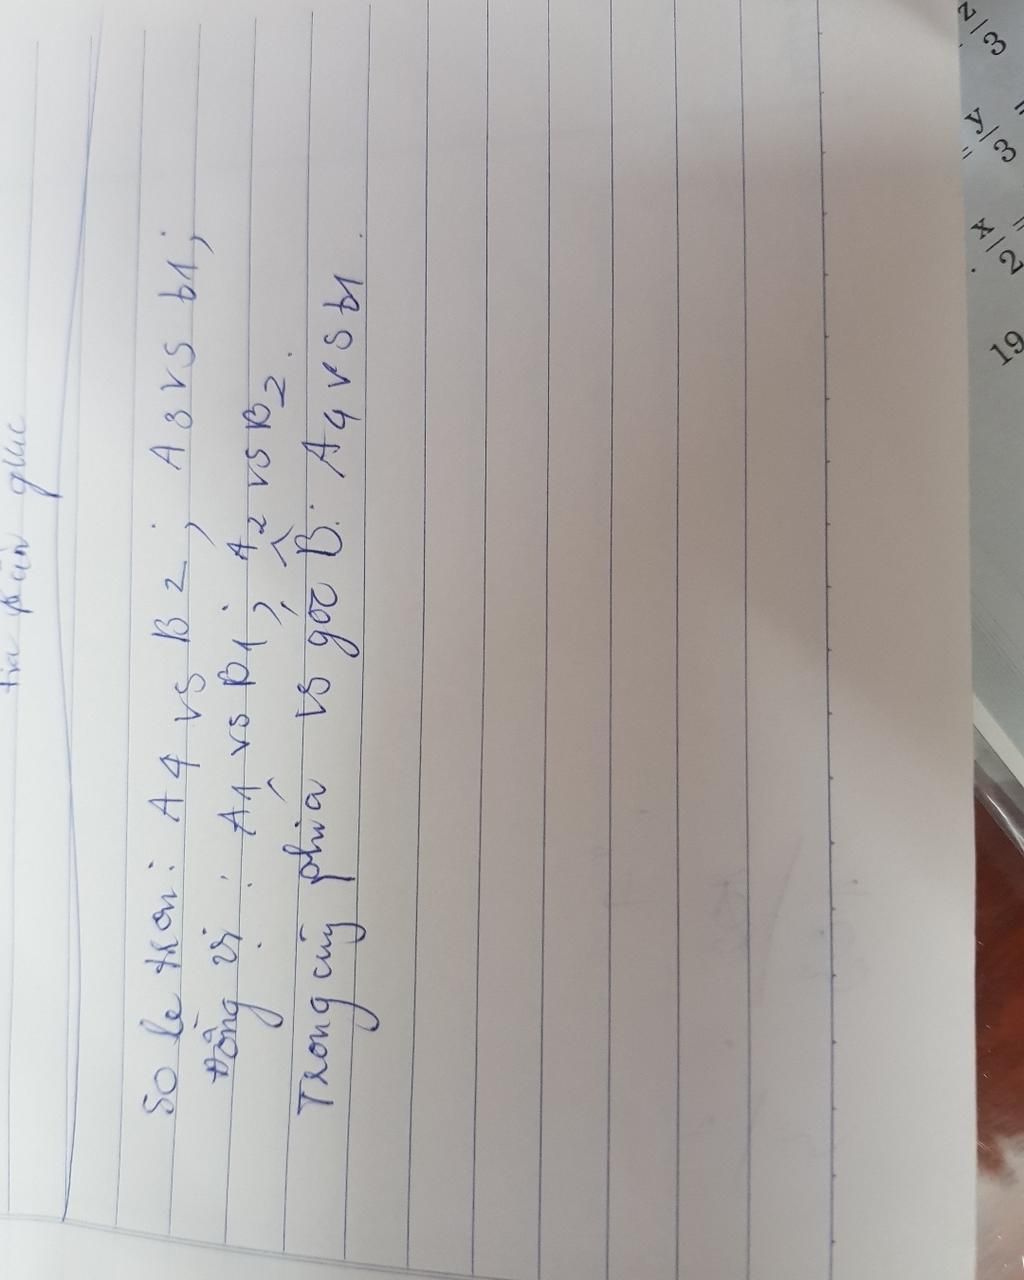 tia phân giác
So le tron: A4 vs B2; A3 vs b1;
Đồng vị: A1 vs B1; A2 vs B2.
Trong cùng phía vs góc B: A4 vs b1.
19
x/2 = y/3 =
z/3